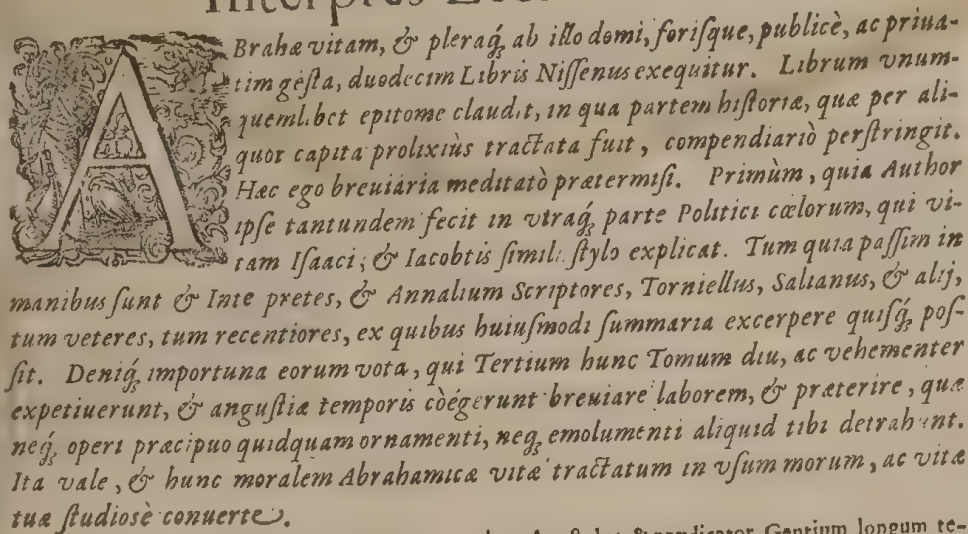 Interpres
ABrahæ vitam, & pleraq́; ab illo domi, forisque, publicè, ac priua-
tim gesta, duodecim Libris Nissenus exequitur. Librum vnum-
quemlibet epitome claudit, in qua partem historiæ, quæ per ali-
quot capita prolixiùs tractata fuit, compendiariò perstringit.
Hæc ego breuiaria meditatò prætermisi. Primùm, quia Author
ipse tantundem fecit in vtraq́; parte Politici cœlorum, qui vi-
tam Isaaci, & Iacobi tis simili stylo explicat. Tum quia passim in
manibus sunt & Inte pretes, & Annalium Scriptores, Torniellus, Salianus, & alij,
tum veteres, tum recentiores, ex quibus huiusmodi summaria excerpere quisq́; pos-
sit. Deniq́; importuna eorum vota, qui Tertium hunc Tomum diu, ac vehementer
expetiuerunt, & angustiæ temporis còëgerunt breuiare laborem, & præterire, quæ
neq́; operi præcipuo quidquam ornamenti, neq; emolumenti aliquid tibi detrahunt.
Ita vale, & hunc moralem Abrahamicæ vitæ tractatum in vsum morum, ac vitæ
tuæ studiosè conuerte.
prædicator Gentium longum te-